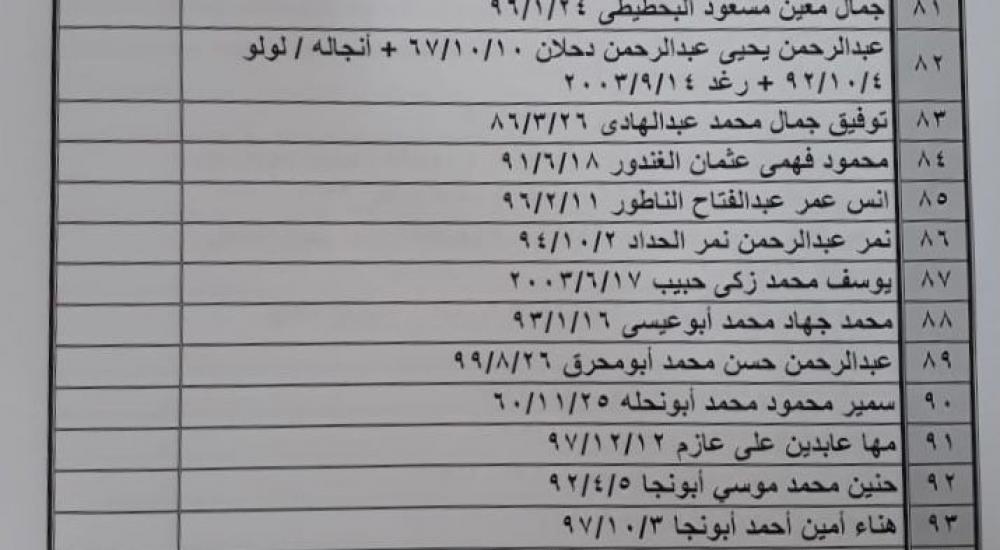 ٨١ جمال معين مسعود البحطيطى ٩٦/١/٢٤
٨٢ عبدالرحمن يحيى عبدالرحمن دحلان ٦٧/١٠/١٠ + أنجاله / لولو
٩٢/١٠/٤ + رغد ٢٠٠٣/٩/١٤
٨٣ توفيق جمال محمد عبدالهادى ٨٦/٣/٢٦
٨٤ محمود فهمى عثمان الغندور ٩١/٦/١٨
٨٥ انس عمر عبدالفتاح الناطور ٩٦/٢/١١
٨٦ نمر عبدالرحمن نمر الحداد ٩٤/١٠/٢
٨٧ يوسف محمد زكى حبيب ٢٠٠٣/٦/١٧
٨٨ محمد جهاد محمد أبوعيسى ٩٣/١/١٦
٨٩ عبدالرحمن حسن محمد أبومحرق ٩٩/٨/٢٦
٩٠ سمير محمود محمد أبونحله ٦٠/١١/٢٥
٩١ مها عابدين على عازم ٩٧/١٢/١٢
٩٢ حنين محمد موسي أبونجا ٩٢/٤/٥
٩٣ هناء أمين أحمد أبونجا ٩٧/١٠/٣